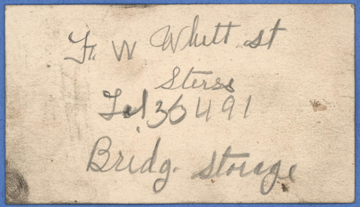 Ft. W Whett st
Steres
Tel 36491
Bridg. Storage